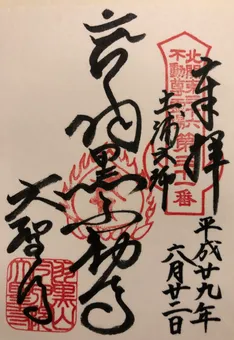 奉拝
北関東三十六
不動尊霊場第三十一番
土浦大師
羽黒不動尊
大聖寺
平成廿九年
六月廿二日